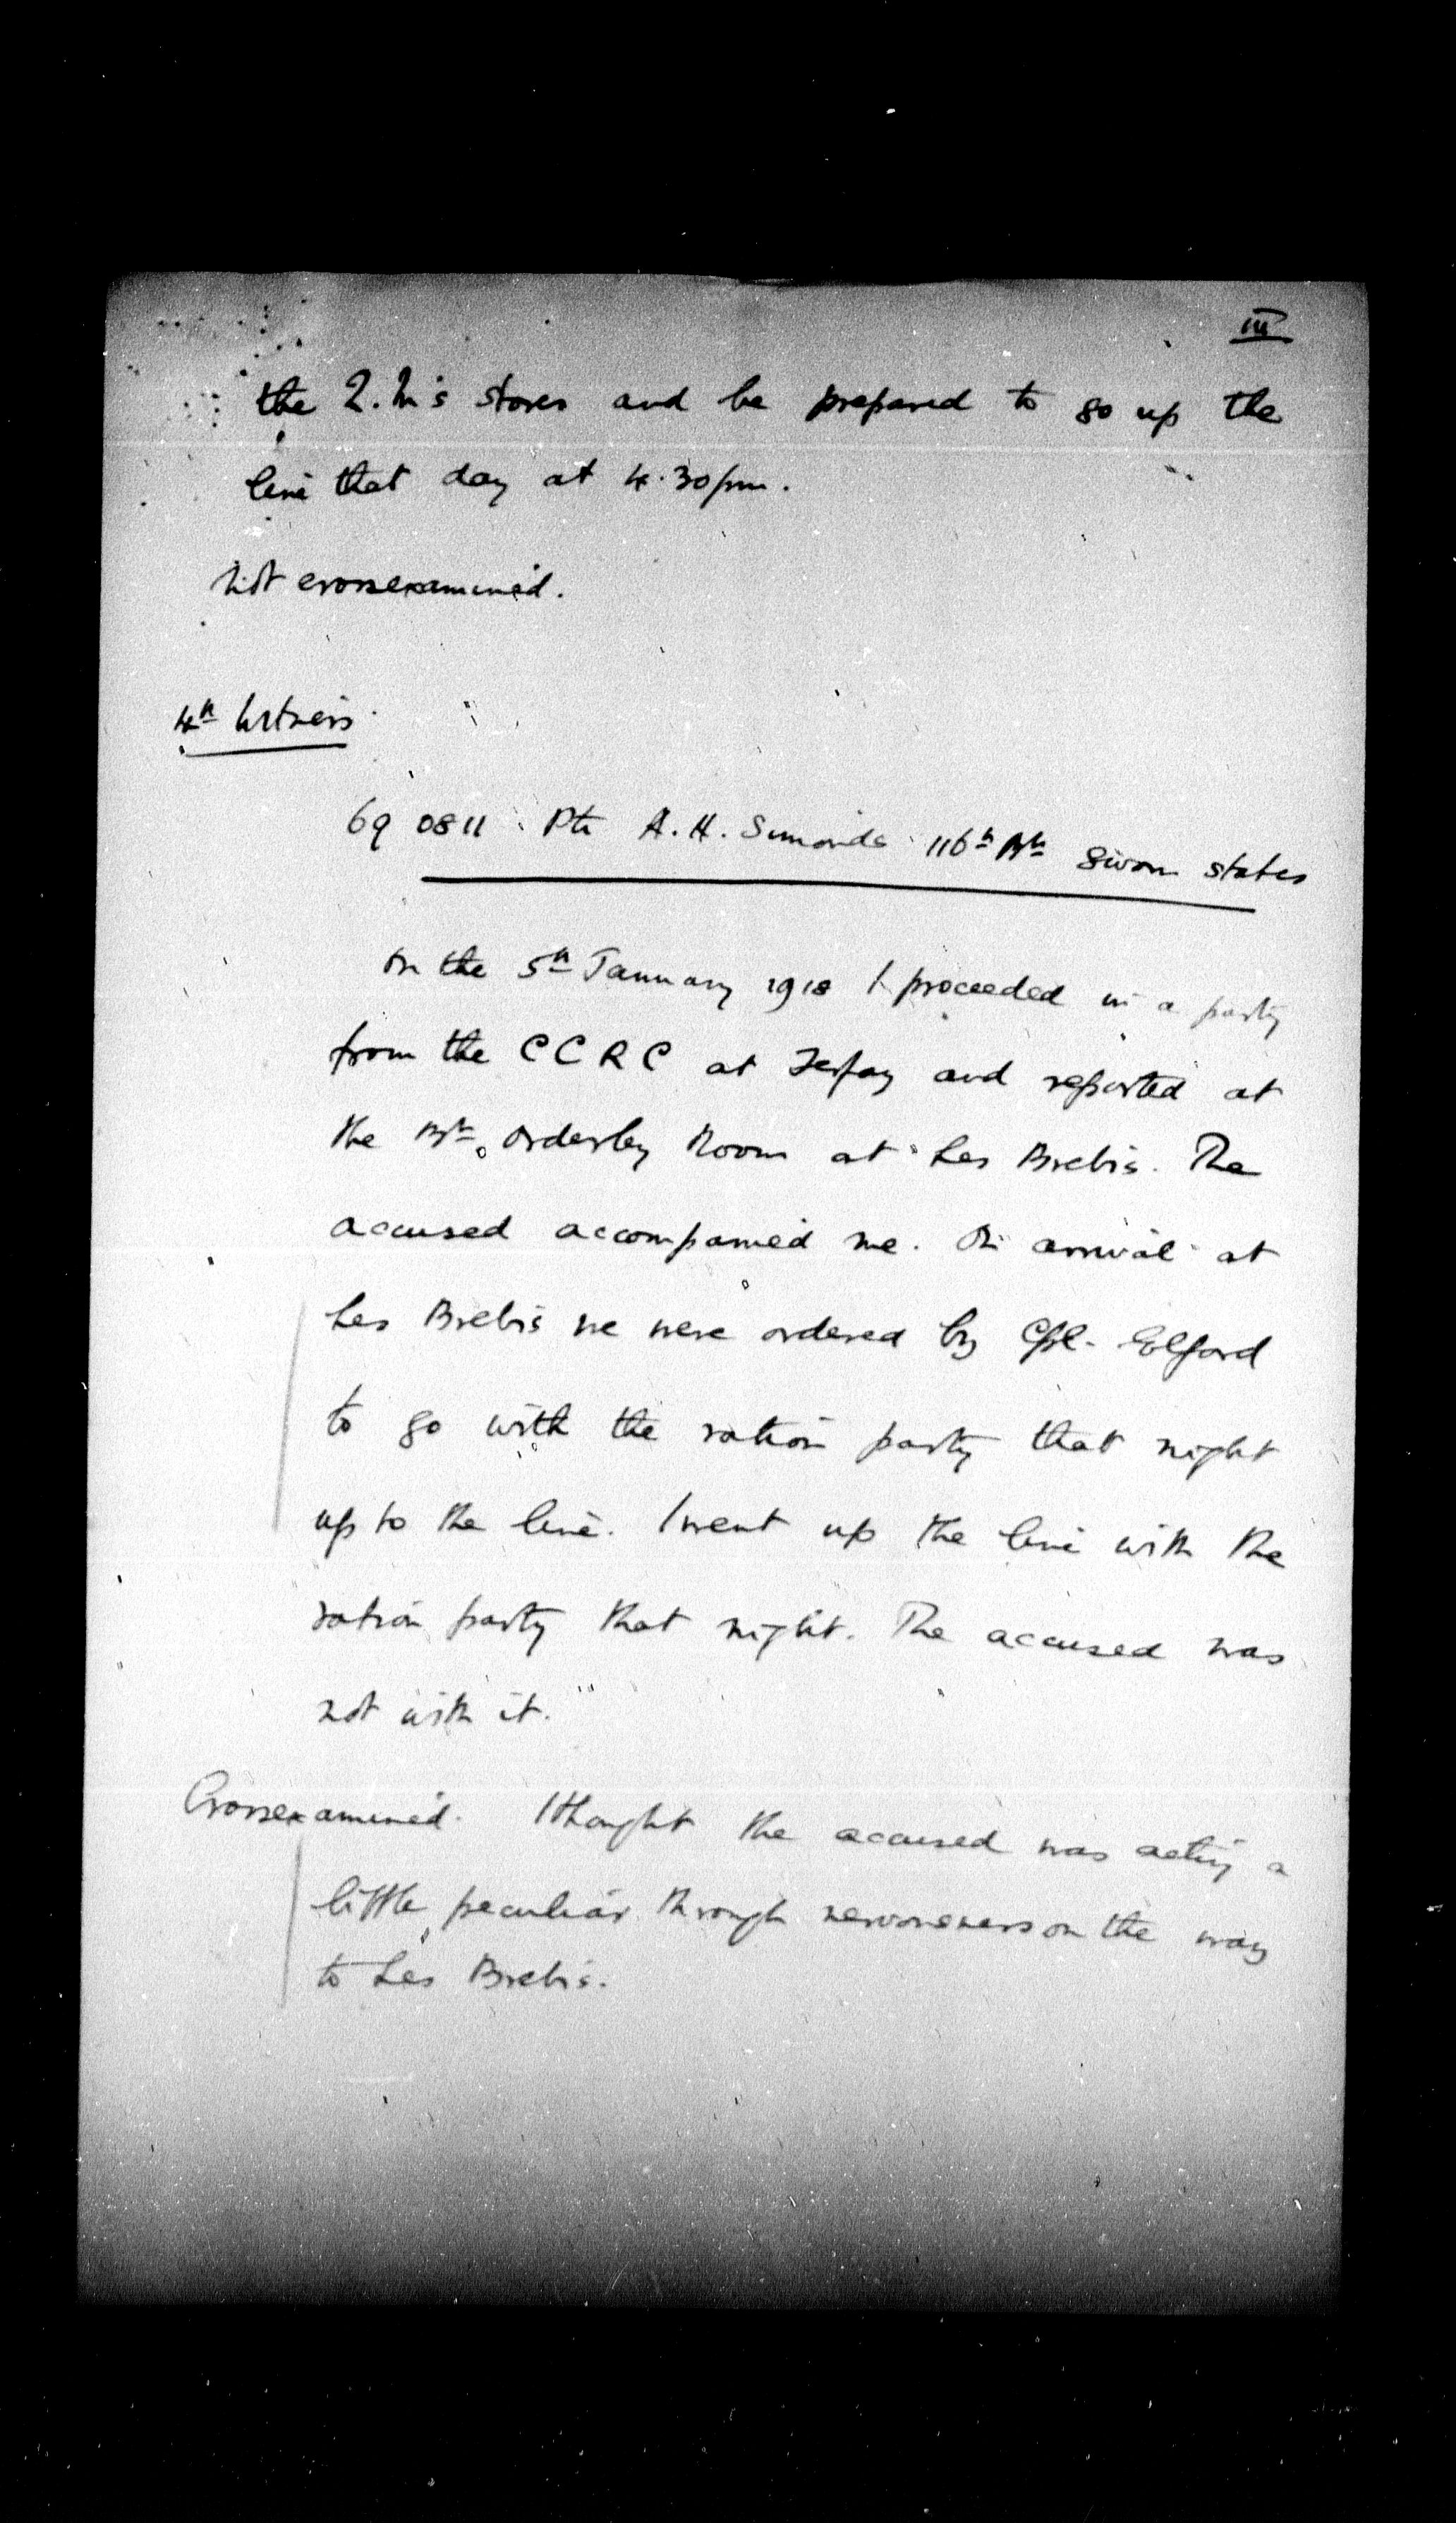 III
the Q.M's stores and be prepared to go up the
line that day at 4.30 pm.
Not crossexamined.
4th Witness.
690811 Pte A. H. Simonds 116th Bn sworn states
On the 5th January 1918 I proceeded in a party
from the CCRC at Ferfay and reported at
the Bn. Orderley Room at Les Brebis. The
accused accompanied me. On arrival at
Les Brebis we were ordered by Cpl. Elford
to go with the ration party that night
up to the line. I went up the line with the
ration party that night. The accused was
not with it.
Crossexamined. I thought the accused was acting a
little peculiar through nervousness on the way
to Les Brebis.